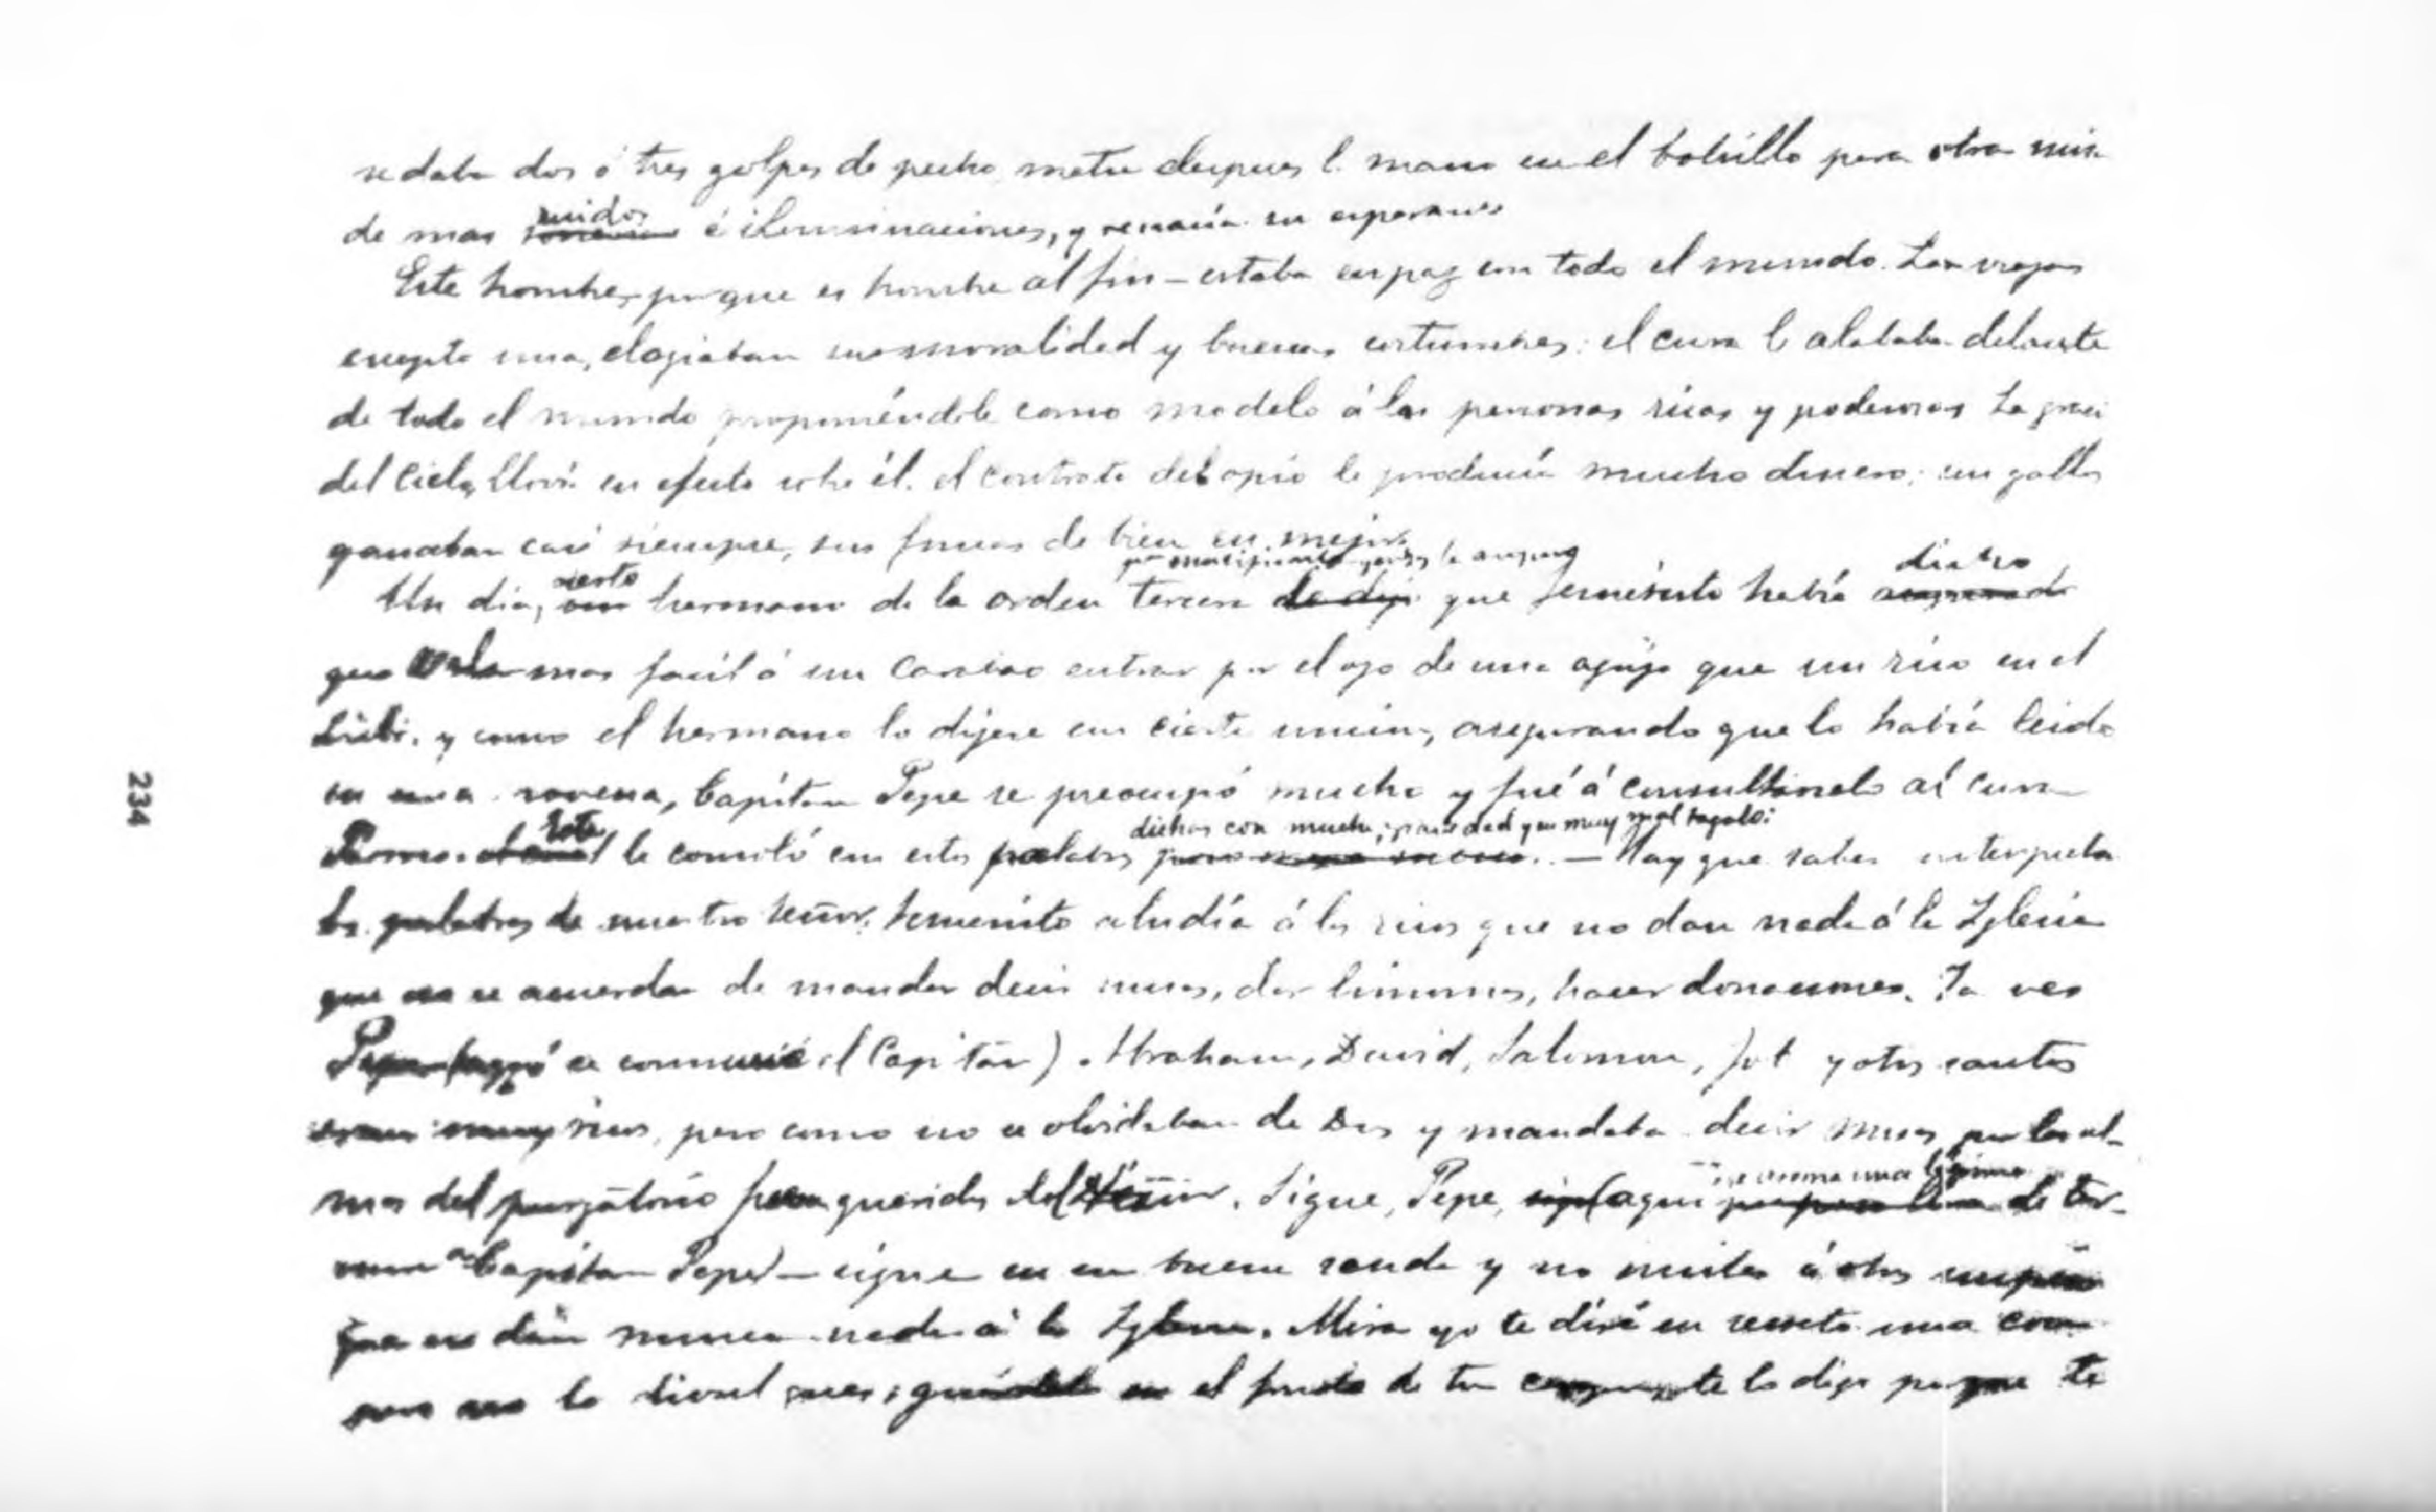 se daba dos ó tres golpes de pecho, metia despues la mano en el bolsillo para otra misa
de mas ruidos é iluminaciones, y renacía su esperanza
Este hombre, porque es hombre al fin - estaba en paz con todo el mundo. Las viejas
excepto una, elogiaban su moralidad y buenas costumbres: el cura le alababa delante
de todo el mundo proponiéndole como modelo á las personas ricas y poderosas La graci
del Cielo, llovió en efecto sobre él. el contrato del opio le producía mucho dinero; sus gallos
ganaban casi siempre, sus fincas de bien en mejor.
Un dia, cierto hermano de la orden tercera que Jesucristo había dicho
que mas facil á un carabao entrar por el ojo de una aguja que un rico en el
Cielo, y como el hermano lo dijese con cierta uncion, asegurando que lo había leido
en una novena, Capitan Pepe se preocupó mucho y fué á consultárselo al cura
Este le consoló con estas palabras dichas con mucha gravedad y en muy mal tagalo: — Hay que saber interpretar
las palabras de nuestro Señor; Jesucristo aludía á los ricos que no dan nada á la Iglesia
que no se acuerdan de mandar decir misas, dar limosnas, hacer donaciones. Ya ves
Pepe (aquí se conmovió el Capitán) Abraham, David, Salomon, Job y otros santos
eran muy ricos, pero como no se olvidaban de Dios y mandaba decir misas por las al-
mas del purgatorio queridos del Señor. Sigue, Pepe, (aqui se asoma una lágrima de ter-
nura a Capitan Pepe) — sigue en su buena senda y no imites á otros
que no dán nunca nada á la Iglesia. Mira yo te diré en secreto una cosa
pero no lo divulgues; guárdalo en el fondo de tu te lo digo porque te
234